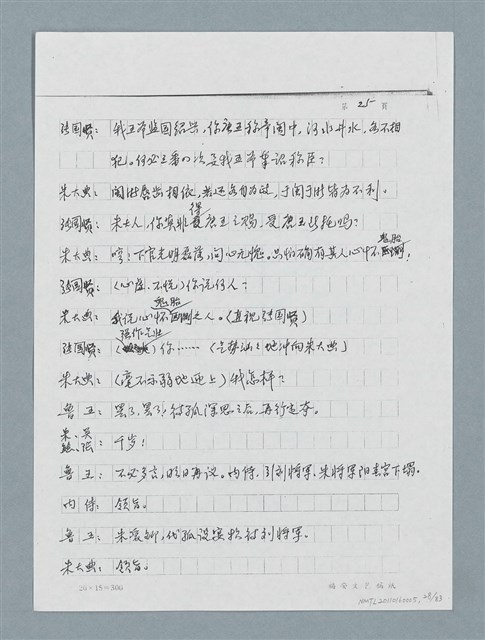 第 25 页
张国贤：我王奉监国绍兴，你唐王称帝闽中，河水井水，各不相
犯。何必三番八次要我王奉笔诏称臣？
朱大典：闽浙唇齿相依，若还各自为政，于闽于浙皆为不利。
张国贤：朱大人，你莫非得唐王之赐，受唐王所托吗？
朱大典：哼！下官光明磊落，问心无愧。只怕确有其人心怀鬼胎！
张国贤：（心虚、不悦）你说何人？
朱大典：我说心怀鬼胎之人。（直视张国贤）
张国贤：（强作气壮）你……（气势汹汹地冲向朱大典）
朱大典：（毫不示弱地迎上）我怎样？
鲁王：罢了，罢了！待孤深思之后，再行定夺。
千岁！
鲁王：不必多言，明日再议。内侍，引刘将军、朱将军阳春宫下塌。
内侍：领旨。
鲁王：朱爱卿，代孤设宴款待刘将军。
朱大典：领旨。
20×15=300
瑞安文艺稿纸
NMTL20110160005, 28/83